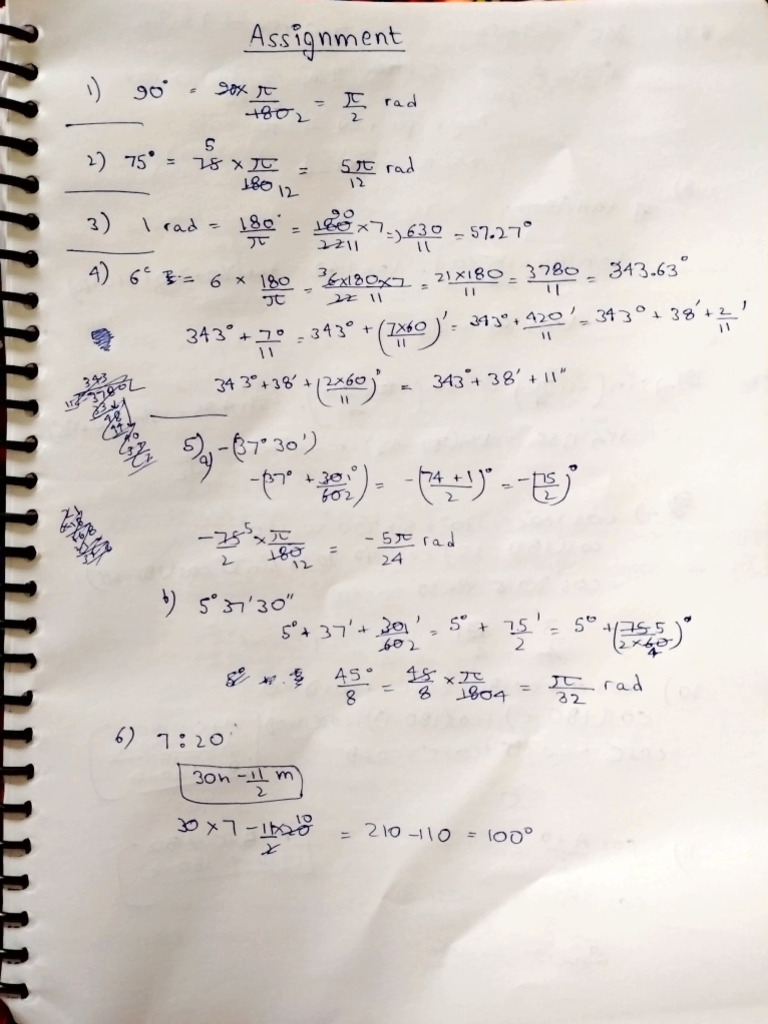 Assignment
1) 90° = 90 × π/180 2 = π/2 rad
2) 75° = 75 5 × π/180 12 = 5π/12 rad
3) 1 rad = 180°/π = 180 90 × 7/22 11 = 630/11 = 57.27°
4) 6ᶜ = 6 × 180/π = 3 6×180×7/22 11 = 21×180/11 = 3780/11 = 343.63°
343° + 7°/11 = 343° + (7×60/11)' = 343° + 420'/11 = 343° + 38' + 2'/11
343° + 38' + (2×60/11)" = 343° + 38' + 11"
5) a) -(37° 30')
-(37° + 30 1°/60 2) = -(74 + 1/2)° = -(75/2)°
-75 5/2 × π/180 12 = -5π/24 rad
b) 5° 37' 30"
5° + 37' + 30 1'/60 2 = 5° + 75'/2 = 5° + (75 5/2×60 4)°
45°/8 = 45/8 × π/180 4 = π/32 rad
6) 7:20
30h - 11/2 m
30 × 7 - 11×20 10/2 = 210 - 110 = 100°